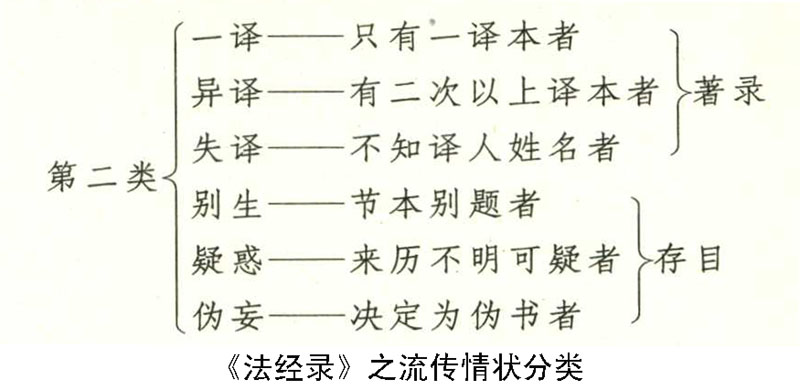 一译——只有一译本者
异译——有二次以上译本者
著录
失译——不知译人姓名者
第二类
别生——节本别题者
疑惑——来历不明可疑者
存目
伪妄——决定为伪书者
《法经录》之流传情状分类